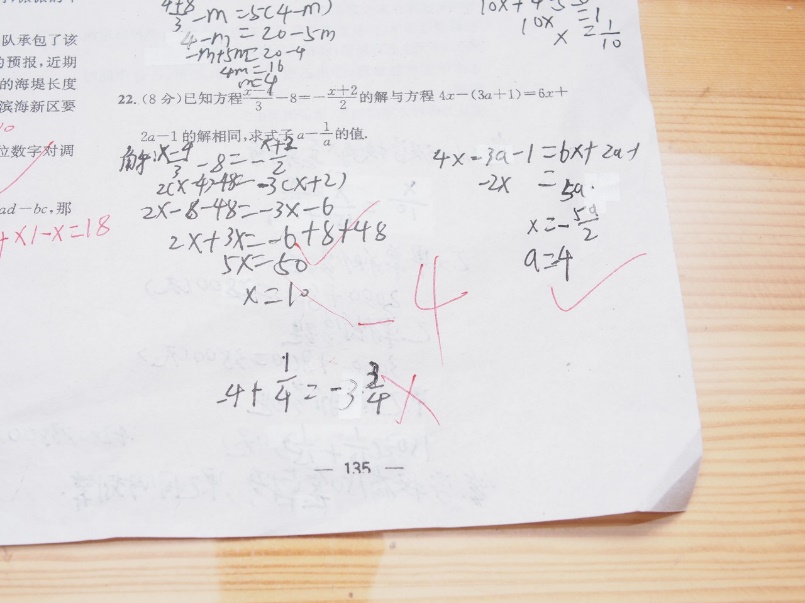 队承包了该
的预报,近期
的海堤长度
滨海新区要
位数字对调
ad-bc,那
+x1-x=18
4+8/3-m=5(4-m)
4-m=20-5m
-m+5m=20-4
4m=16
m=4
10x
=1
x=1/10
22.(8分)已知方程(x-4)/3-8=-(x+2)/2的解与方程4x-(3a+1)=6x+
2a-1的解相同,求式子a-1/a的值.
解:(x-4)/3-8=-(x+2)/2
2(x-4)-48=-3(x+2)
2x-8-48=-3x-6
2x+3x=-6+8+48
5x=50
x=10
4x-3a-1=6x+2a-1
-2x=5a.
x=-5a/2
a=4
-4
-4+1/4=-3 3/4
— 135 —